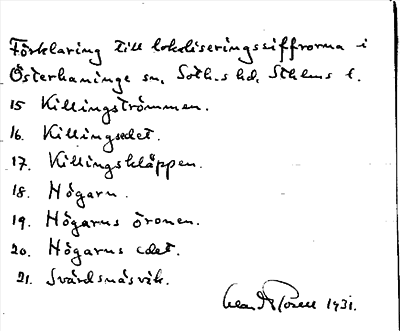 Förklaring till lokaliseringssiffrorna i
Österhaninge sn, Soth.s hd, Sthlms l.
15 Killingströmmen.
16. Killingsedet.
17. Killingskläppen.
18. Högarn.
19. Högarns öronen.
20. Högarns edet.
21. Svärdsnäsvik.
1931.